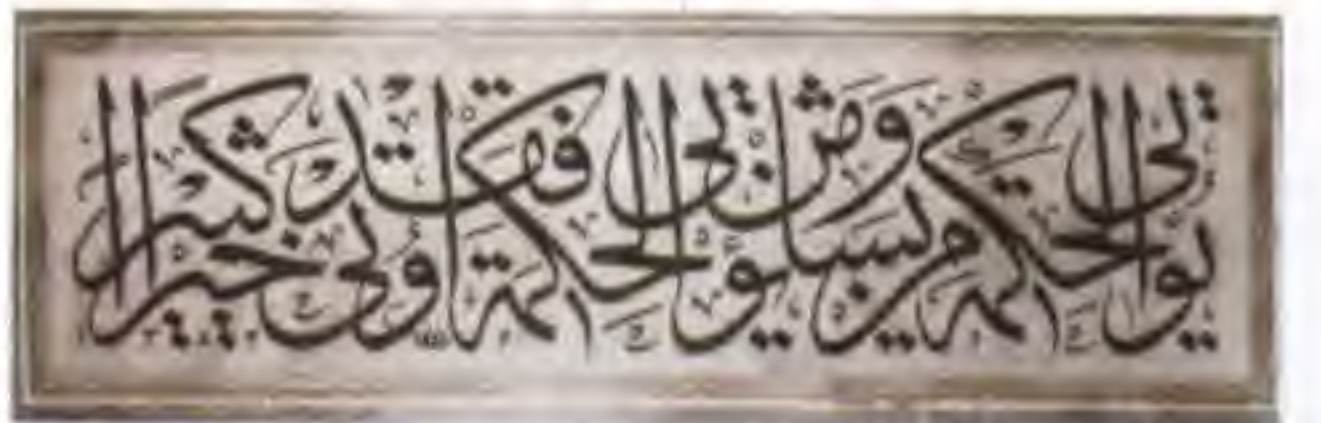 يؤتي الحكمة من يشاء ومن يؤت الحكمة فقد أوتي خيرا كثيرا